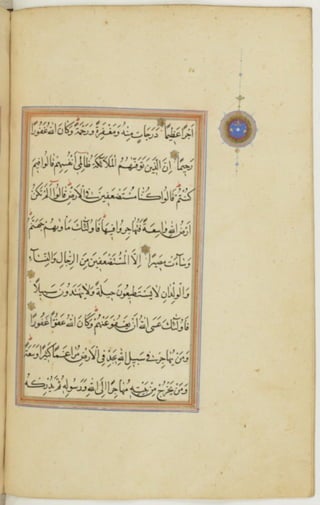 أَجْرًا عَظِيمًا دَرَجَاتٍ مِنْهُ وَمَغْفِرَةً وَرَحْمَةً وَكَانَ اللهُ غَفُورًا
رَحِيمًا إِنَّ الَّذِينَ تَوَفّٰهُمُ الْمَلَائِكَةُ ظَالِمِي أَنْفُسِهِمْ قَالُوا فِيمَ
كُنْتُمْ قَالُوا كُنَّا مُسْتَضْعَفِينَ فِي الْأَرْضِ قَالُوا أَلَمْ تَكُنْ
أَرْضُ اللهِ وَاسِعَةً فَتُهَاجِرُوا فِيهَا فَأُولٰئِكَ مَأْوٰيهُمْ جَهَنَّمُ
وَسَاءَتْ مَصِيرًا إِلَّا الْمُسْتَضْعَفِينَ مِنَ الرِّجَالِ وَالنِّسَاءِ
وَالْوِلْدَانِ لَا يَسْتَطِيعُونَ حِيلَةً وَلَا يَهْتَدُونَ سَبِيلًا
فَأُولٰئِكَ عَسَى اللهُ أَنْ يَعْفُوَ عَنْهُمْ وَكَانَ اللهُ عَفُوًّا غَفُورًا
وَمَنْ يُهَاجِرْ فِي سَبِيلِ اللهِ يَجِدْ فِي الْأَرْضِ مُرَاغَمًا كَثِيرًا وَسَعَةً
وَمَنْ يَخْرُجْ مِنْ بَيْتِهِ مُهَاجِرًا إِلَى اللهِ وَرَسُولِهِ ثُمَّ يُدْرِكْهُ